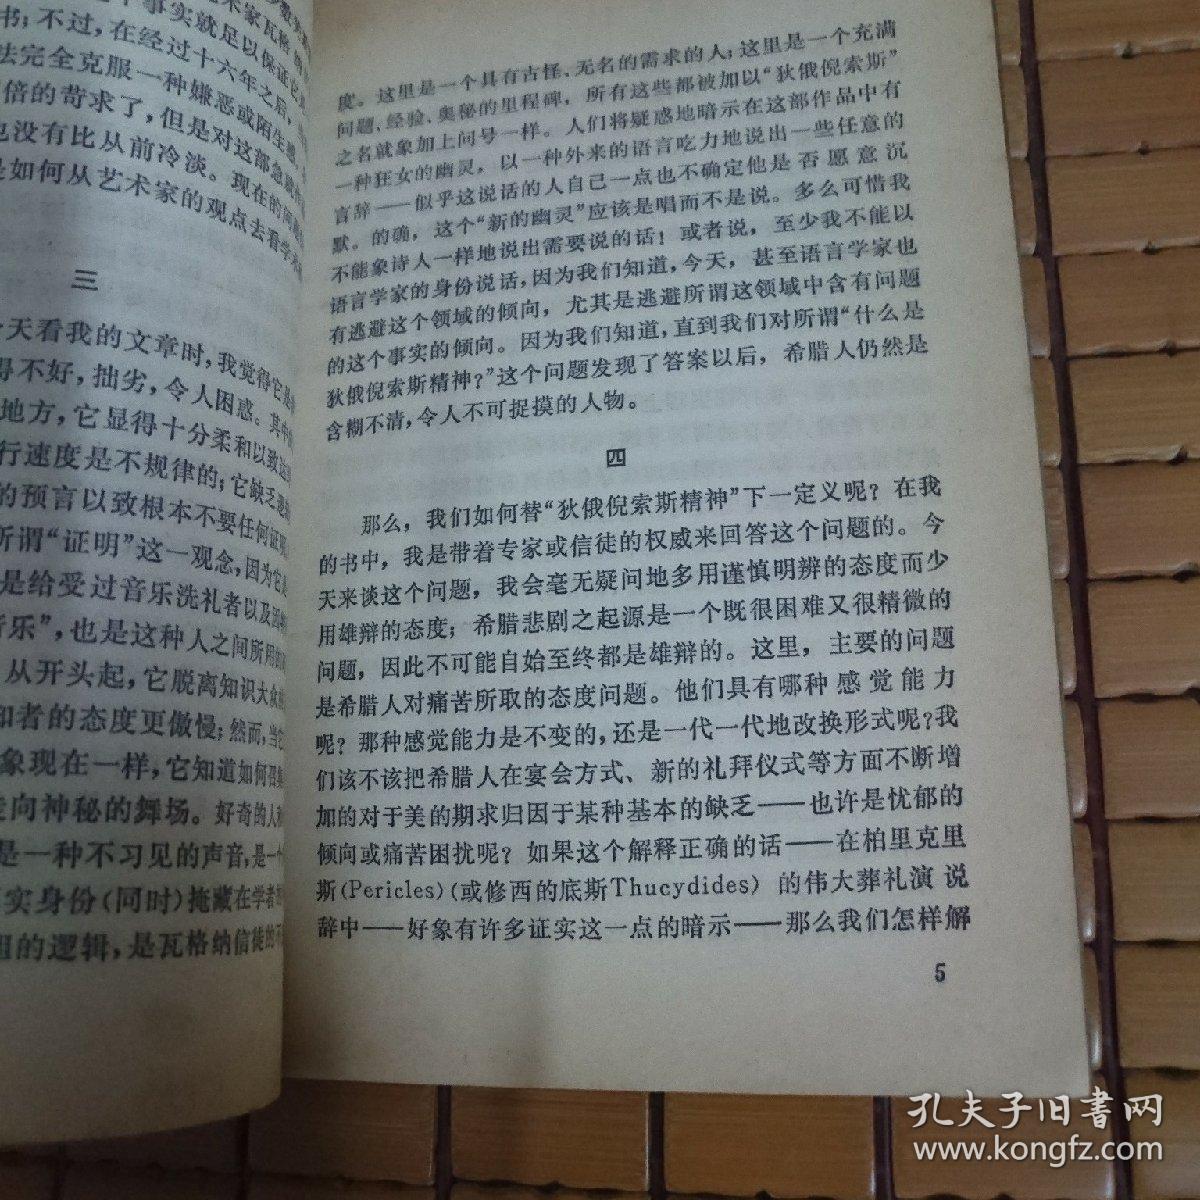 书；不过，在经过十六年之后，
法完全克服一种嫌恶或陌生感，
倍的苛求了，但是对这部急
也没有比从前冷淡。现在的问题
是如何从艺术家的观点去看学
三
今天看我的文章时，我觉得它是
得不好，拙劣，令人困惑。其中
地方，它显得十分柔和以致达
行速度是不规律的；它缺乏逻辑
的预言以致根本不要任何证明
所谓“证明”这一观念，因为它是
是给受过音乐洗礼者以及团
音乐”，也是这种人之间所用的
从开头起，它脱离知识大众
知者的态度更傲慢；然而，当它
象现在一样，它知道如何召集
走向神秘的舞场。好奇的人
是一种不习见的声音，是一个
实身份(同时)掩藏在学者
的逻辑，是瓦格纳信徒的不
度。这里是一个具有古怪、无名的需求的人；这里是一个充满
问题、经验、奥秘的里程碑，所有这些都被加以“狄俄倪索斯”
之名就象加上问号一样。人们将疑惑地暗示在这部作品中有
一种狂女的幽灵，以一种外来的语言吃力地说出一些任意的
言辞——似乎这说话的人自己一点也不确定他是否愿意沉
默。的确，这个“新的幽灵”应该是唱而不是说。多么可惜我
不能象诗人一样地说出需要说的话！或者说，至少我不能以
语言学家的身份说话，因为我们知道，今天，甚至语言学家也
有逃避这个领域的倾向，尤其是逃避所谓这领域中含有问题
的这个事实的倾向。因为我们知道，直到我们对所谓“什么是
狄俄倪索斯精神？”这个问题发现了答案以后，希腊人仍然是
含糊不清，令人不可捉摸的人物。
四
那么，我们如何替“狄俄倪索斯精神”下一定义呢？在我
的书中，我是带着专家或信徒的权威来回答这个问题的。今
天来谈这个问题，我会毫无疑问地多用谨慎明辨的态度而少
用雄辩的态度；希腊悲剧之起源是一个既很困难又很精微的
问题，因此不可能自始至终都是雄辩的。这里，主要的问题
是希腊人对痛苦所取的态度问题。他们具有哪种感觉能力
呢？那种感觉能力是不变的，还是一代一代地改换形式呢？我
们该不该把希腊人在宴会方式、新的礼拜仪式等方面不断增
加的对于美的期求归因于某种基本的缺乏——也许是忧郁的
倾向或痛苦困扰呢？如果这个解释正确的话——在柏里克里
斯(Pericles)(或修西的底斯Thucydides) 的伟大葬礼演说
辞中——好象有许多证实这一点的暗示——那么我们怎样解
5
孔夫子旧书网
www.kongfz.com